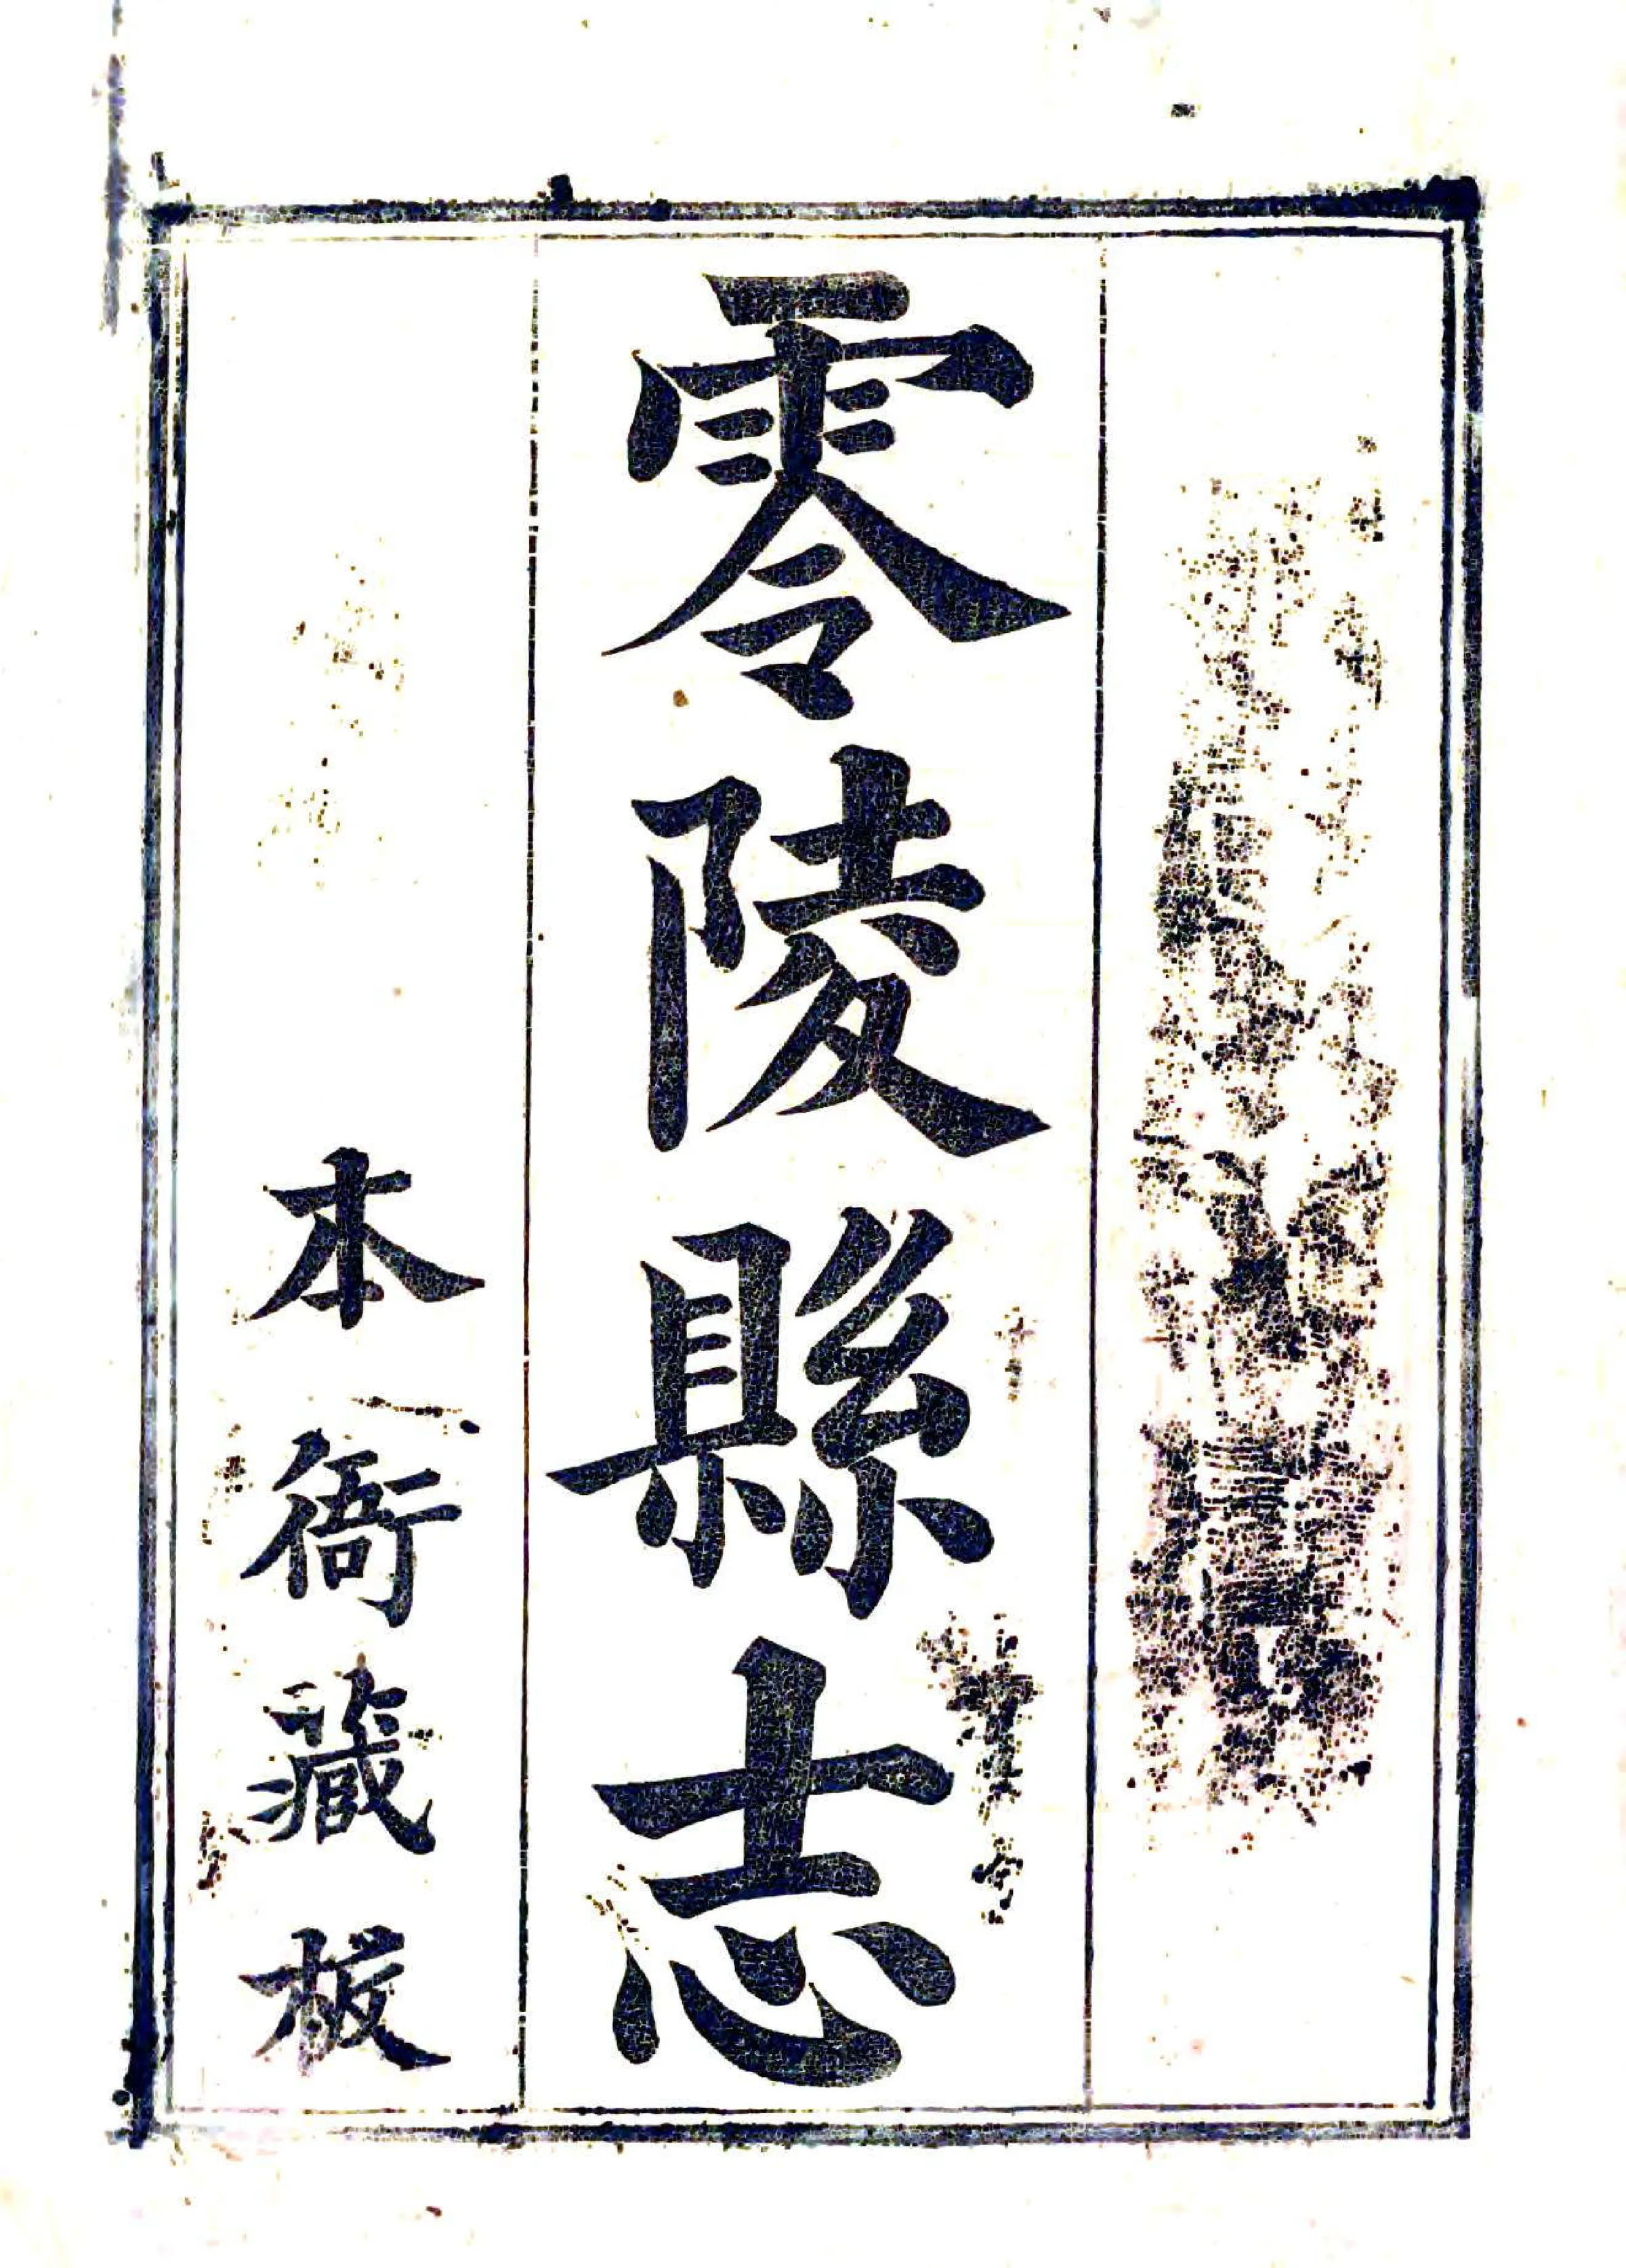 零陵縣志
本衙藏板